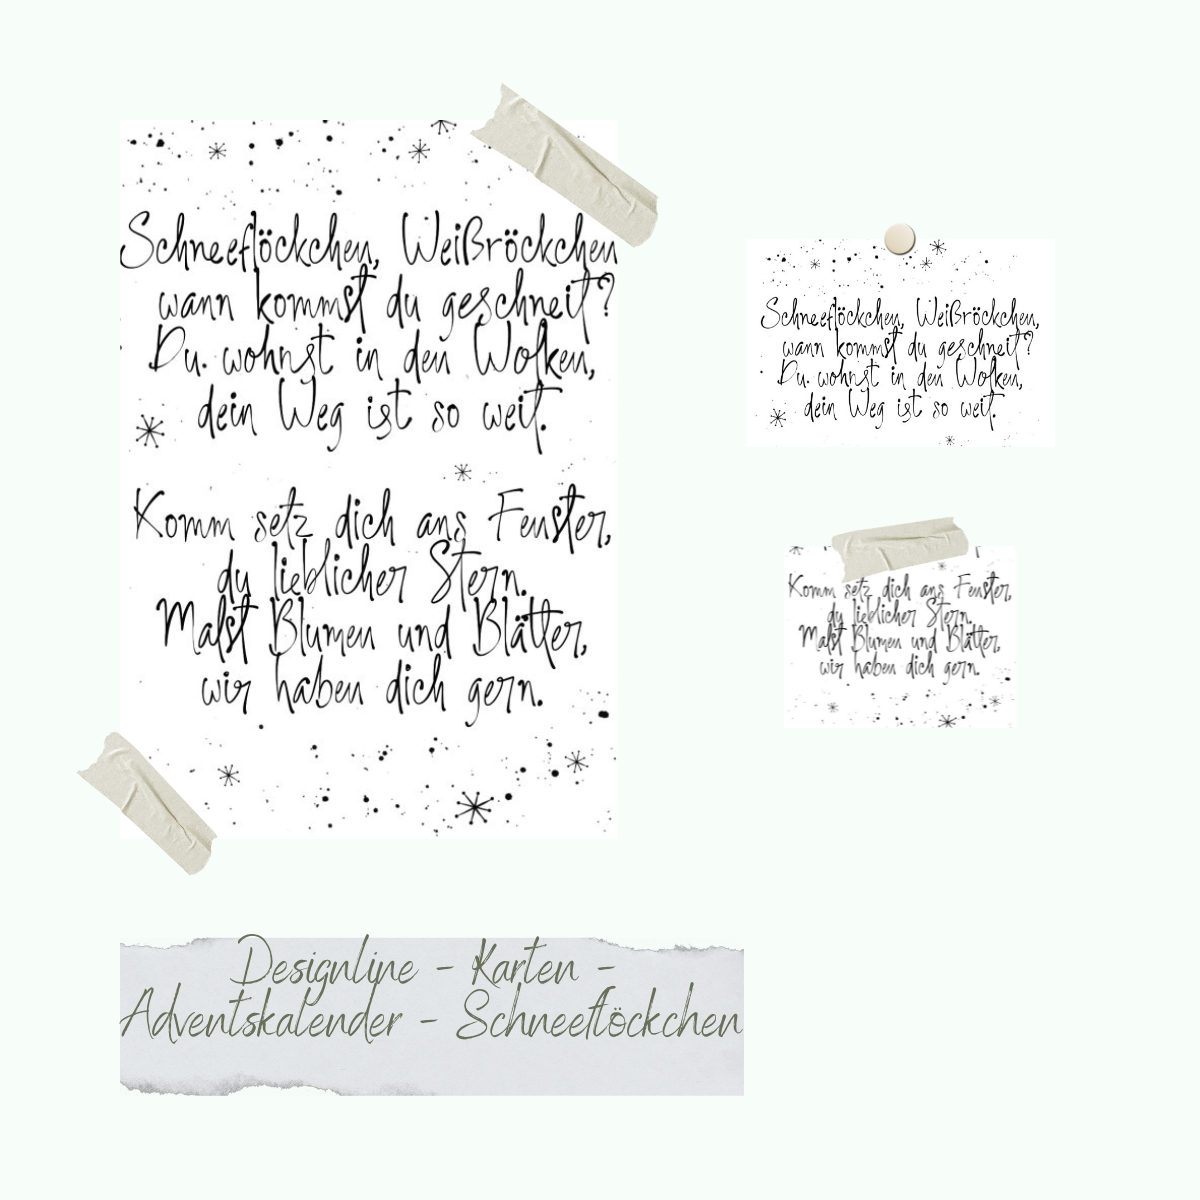 Schneeflöckchen, Weißröckchen
wann kommst du geschneit?
Du wohnst in den Wolken,
dein Weg ist so weit.
Komm setz dich ans Fenster,
du lieblicher Stern.
Malst Blumen und Blätter,
wir haben dich gern.
Schneeflöckchen, Weißröckchen,
wann kommst du geschneit?
Du wohnst in den Wolken,
dein Weg ist so weit.
Komm setz dich ans Fenster,
du lieblicher Stern.
Malst Blumen und Blätter,
wir haben dich gern.
Designline - Karten -
Adventskalender - Schneeflöckchen